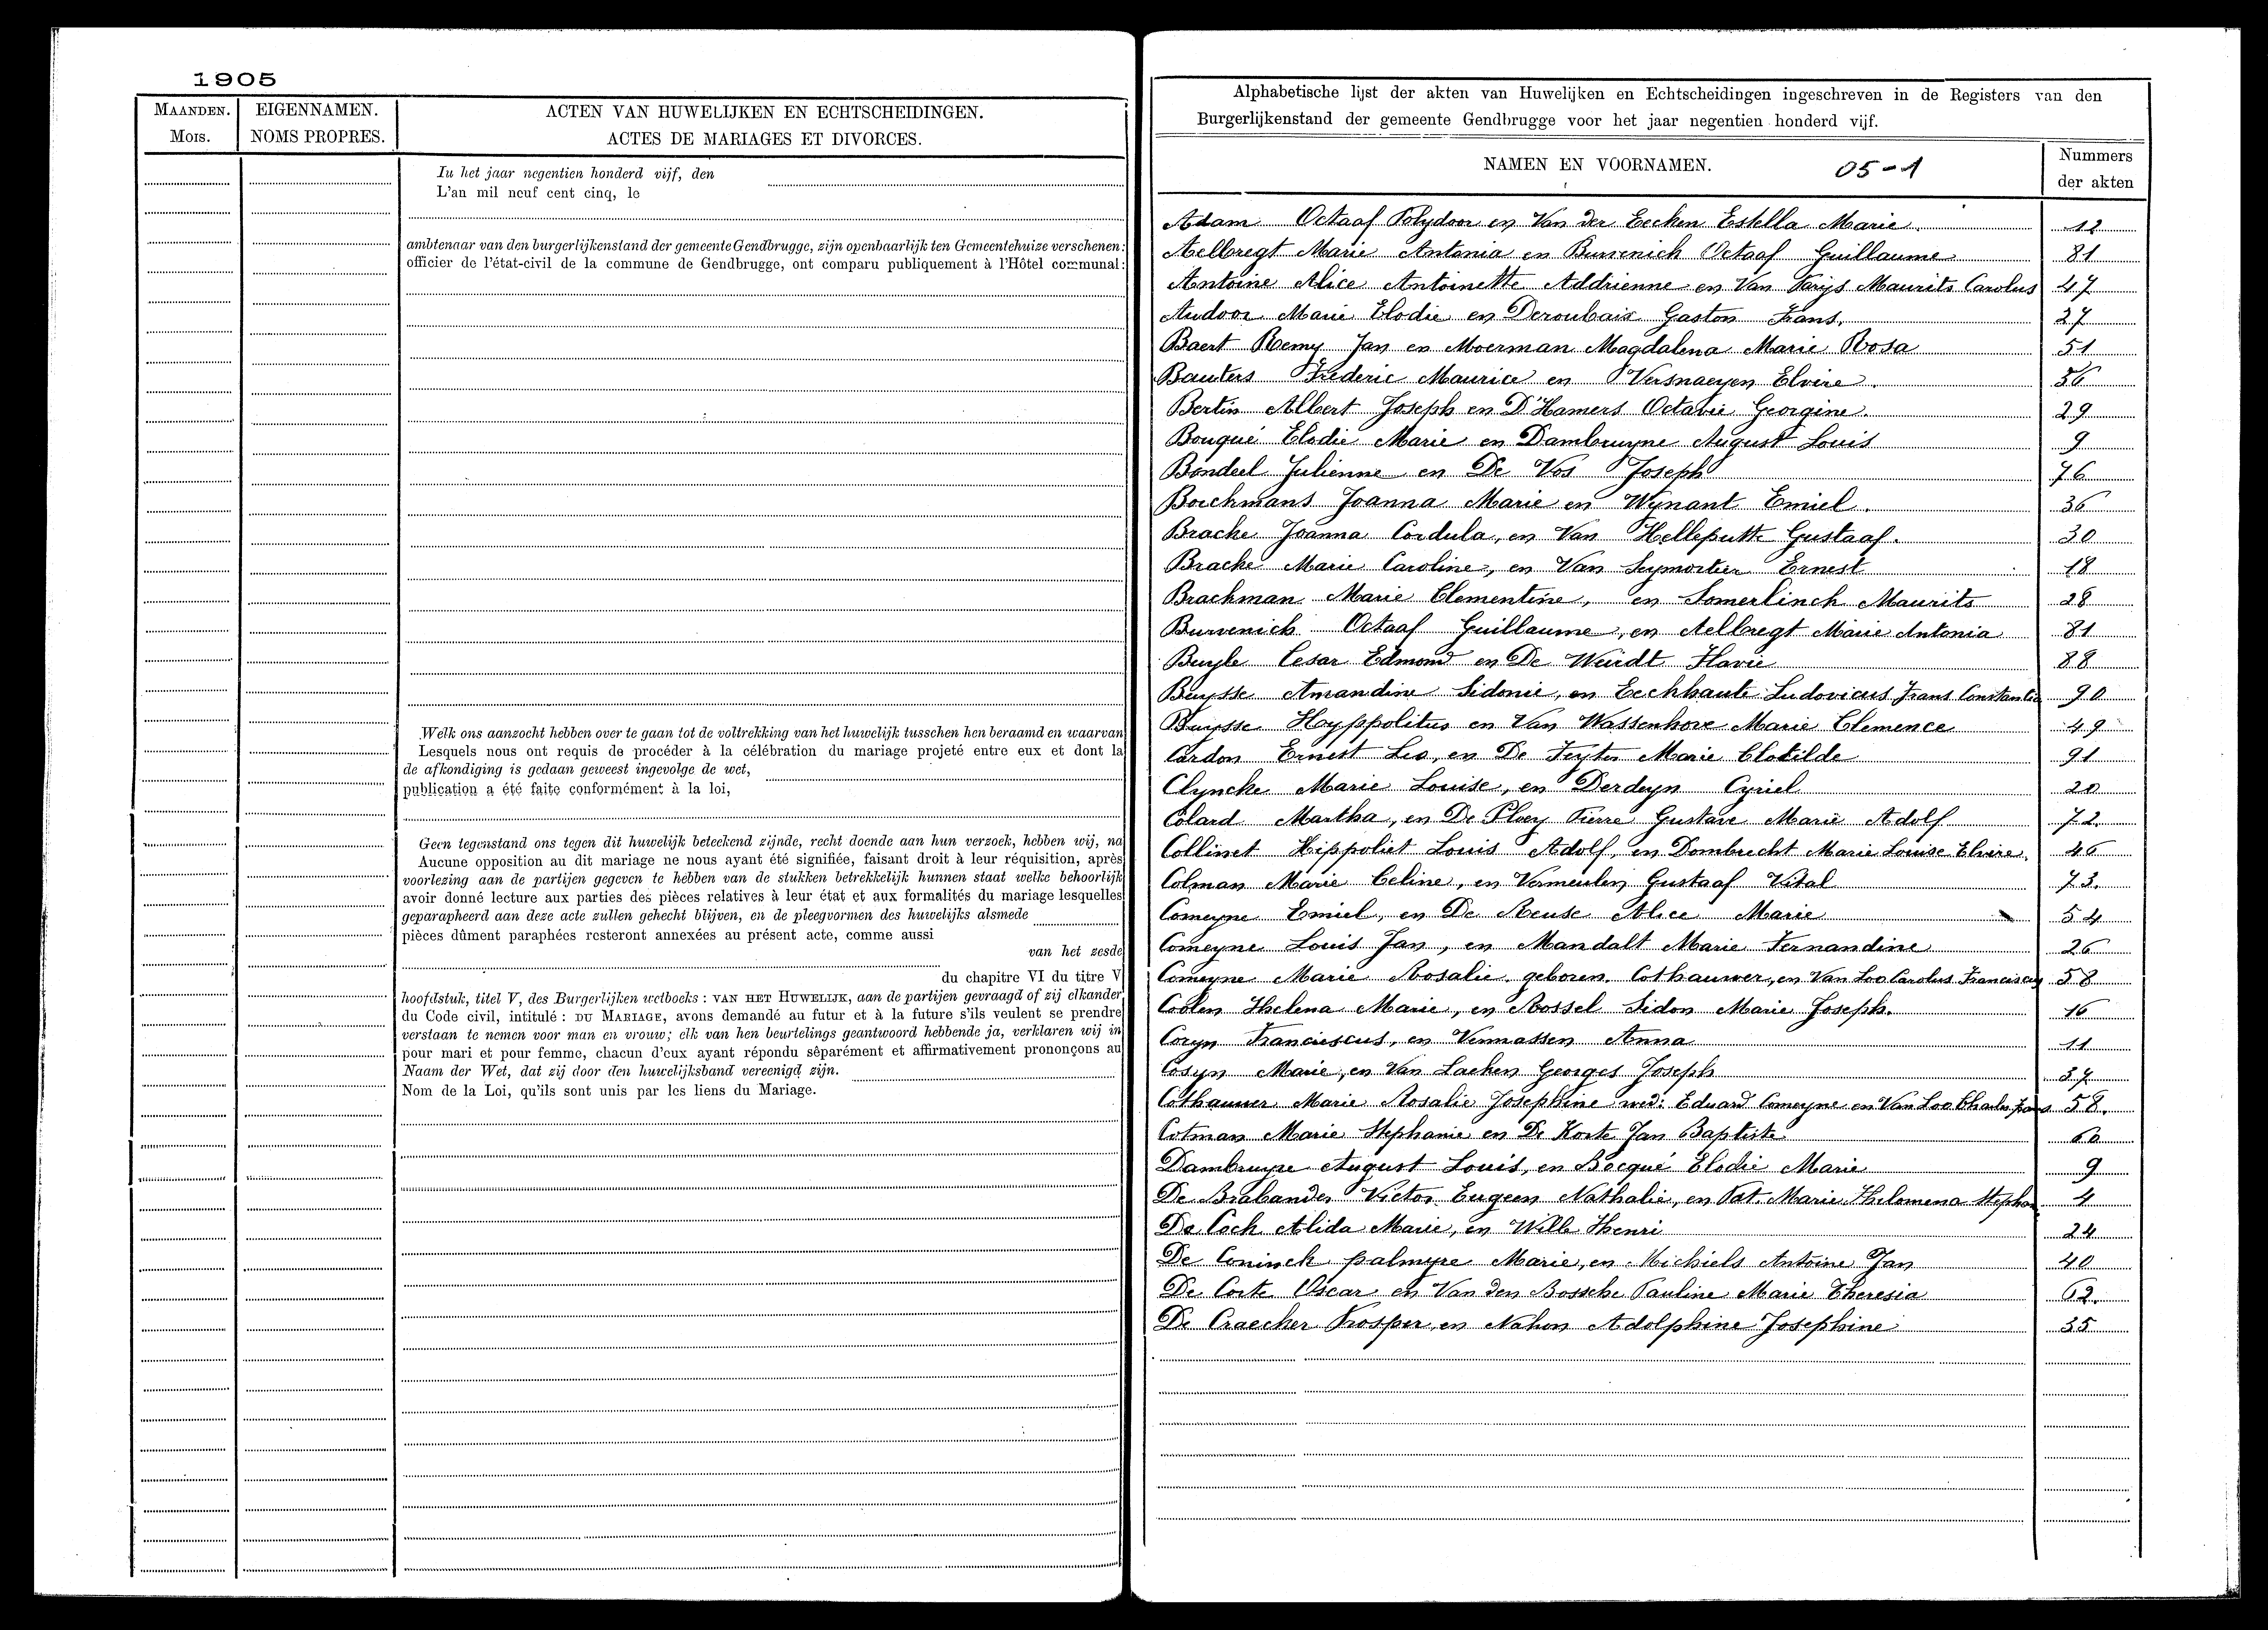 1905
MAANDEN.
Mois.
EIGENNAMEN.
NOMS PROPRES.
ACTEN VAN HUWELIJKEN EN ECHTSCHEIDINGEN.
ACTES DE MARIAGES ET DIVORCES.
In het jaar negentien honderd vijf, den
L'an mil neuf cent cinq, le
ambtenaar van den burgerlijkenstand der gemeente Gendbrugge, zijn openbaarlijk ten Gemeentehuize verschenen:
officier de l'état-civil de la commune de Gendbrugge, ont comparu publiquement à l'Hôtel communal:
Welk ons aanzocht hebben over te gaan tot de voltrekking van het huwelijk tusschen hen beraamd en waarvan
Lesquels nous ont requis de procéder à la célébration du mariage projeté entre eux et dont la
de afkondiging is gedaan geweest ingevolge de wet,
publication a été faite conformément à la loi,
Geen tegenstand ons tegen dit huwelijk beteekend zijnde, recht doende aan hun verzoek, hebben wij, na
Aucune opposition au dit mariage ne nous ayant été signifiée, faisant droit à leur réquisition, après
voorlezing aan de partijen gegeven te hebben van de stukken betrekkelijk hunnen staat welke behoorlijk
avoir donné lecture aux parties des pièces relatives à leur état et aux formalités du mariage lesquelles
geparapheerd aan deze acte zullen gehecht blijven, en de pleegvormen des huwelijks alsmede
pièces dûment paraphées resteront annexées au présent acte, comme aussi
van het zesde
du chapitre VI du titre V
hoofdstuk, titel V, des Burgerlijken wetboeks : VAN HET HUWELIJK, aan de partijen gevraagd of zij elkander
du Code civil, intitulé : DU MARIAGE, avons demandé au futur et à la future s'ils veulent se prendre
verstaan te nemen voor man en vrouw; elk van hen beurtelings geantwoord hebbende ja, verklaren wij in
pour mari et pour femme, chacun d'eux ayant répondu séparément et affirmativement prononçons au
Naam der Wet, dat zij door den huwelijksband vereenigd zijn.
Nom de la Loi, qu'ils sont unis par les liens du Mariage.
Alphabetische lijst der akten van Huwelijken en Echtscheidingen ingeschreven in de Registers van den
Burgerlijkenstand der gemeente Gendbrugge voor het jaar negentien honderd vijf.
NAMEN EN VOORNAMEN. 05-1
Nummers
der akten
Adam Octaaf Polydoor en Van der Eecken Estella Marie. 12
Aelbregt Marie Antonia en Burvenich Octaaf Guillaume 81
Antoine Alice Antoinette Addrienne en Van Parijs Maurits Carolus 47
Audoor Marie Elodie en Deroubaix Gaston Frans. 27
Baert Remy Jan en Moerman Magdalena Marie Rosa 51
Bauters Frederic Maurice en Versnaeyen Elvire. 56
Bertin Albert Joseph en D'Hamers Octavie Georgine. 29
Bouqué Elodie Marie en Dambruyne August Louis 9
Bondeel Julienne en De Vos Joseph 76
Borckmans Joanna Marie en Wynant Emiel. 36
Bracke Joanna Cordula, en Van Helleputte Gustaaf. 30
Bracke Marie Caroline, en Van Seymortier Ernest 18
Brackman Marie Clementine, en Somerlinch Maurits 28
Burvenich Octaaf Guillaume, en Aelbregt Marie Antonia 81
Buyle Cesar Edmond en De Weirdt Flavie 88
Buysse Amandine Sidonie, en Eeckhaute Ludovicus Frans Constantin 90
Buysse Hyppolitus en Van Wassenhove Marie Clemence 49
Cardon Ernest Leo, en De Feyter Marie Clotilde 91
Clyncke Marie Louise, en Derdeyn Cyriel 20
Colard Martha, en De Ploey Pierre Gustave Marie Adolf 72
Collinet Hippoliet Louis Adolf, en Dombrecht Marie Louise Elvire. 46
Colman Marie Celine, en Vermeulen Gustaaf Vital 73.
Comeyne Emiel, en De Reuse Alice Marie 54
Comeyne Louis Jan, en Mandalt Marie Fernandine 26
Comeyne Marie Rosalie geboren Cothauwer, en Van Loo Carolus Franciscus 58
Coolen Helena Marie, en Rossel Sidon Marie Joseph. 16
Coryn Franciscus, en Vermassen Anna 11
Cosyn Marie, en Van Laeken Georges Joseph 37
Cothauwer Marie Rosalie Josephine wed: Eduard Comeyne en Van Loo Charles Frans 58.
Cotman Marie Stephanie en De Korte Jan Baptiste 60
Dambruyne August Louis, en Bocqué Elodie Marie 9
De Brabander Victor Eugeen Nathalie, en Pat Marie Philomena Stephan 4
De Cock Alida Marie, en Wille Henri 24
De Coninck palmyre Marie, en Michiels Antoine Jan 40
De Corte Oscar en Van den Bossche Pauline Marie Theresia 62.
De Craecker Prosper, en Nahon Adolphine Josephine 35